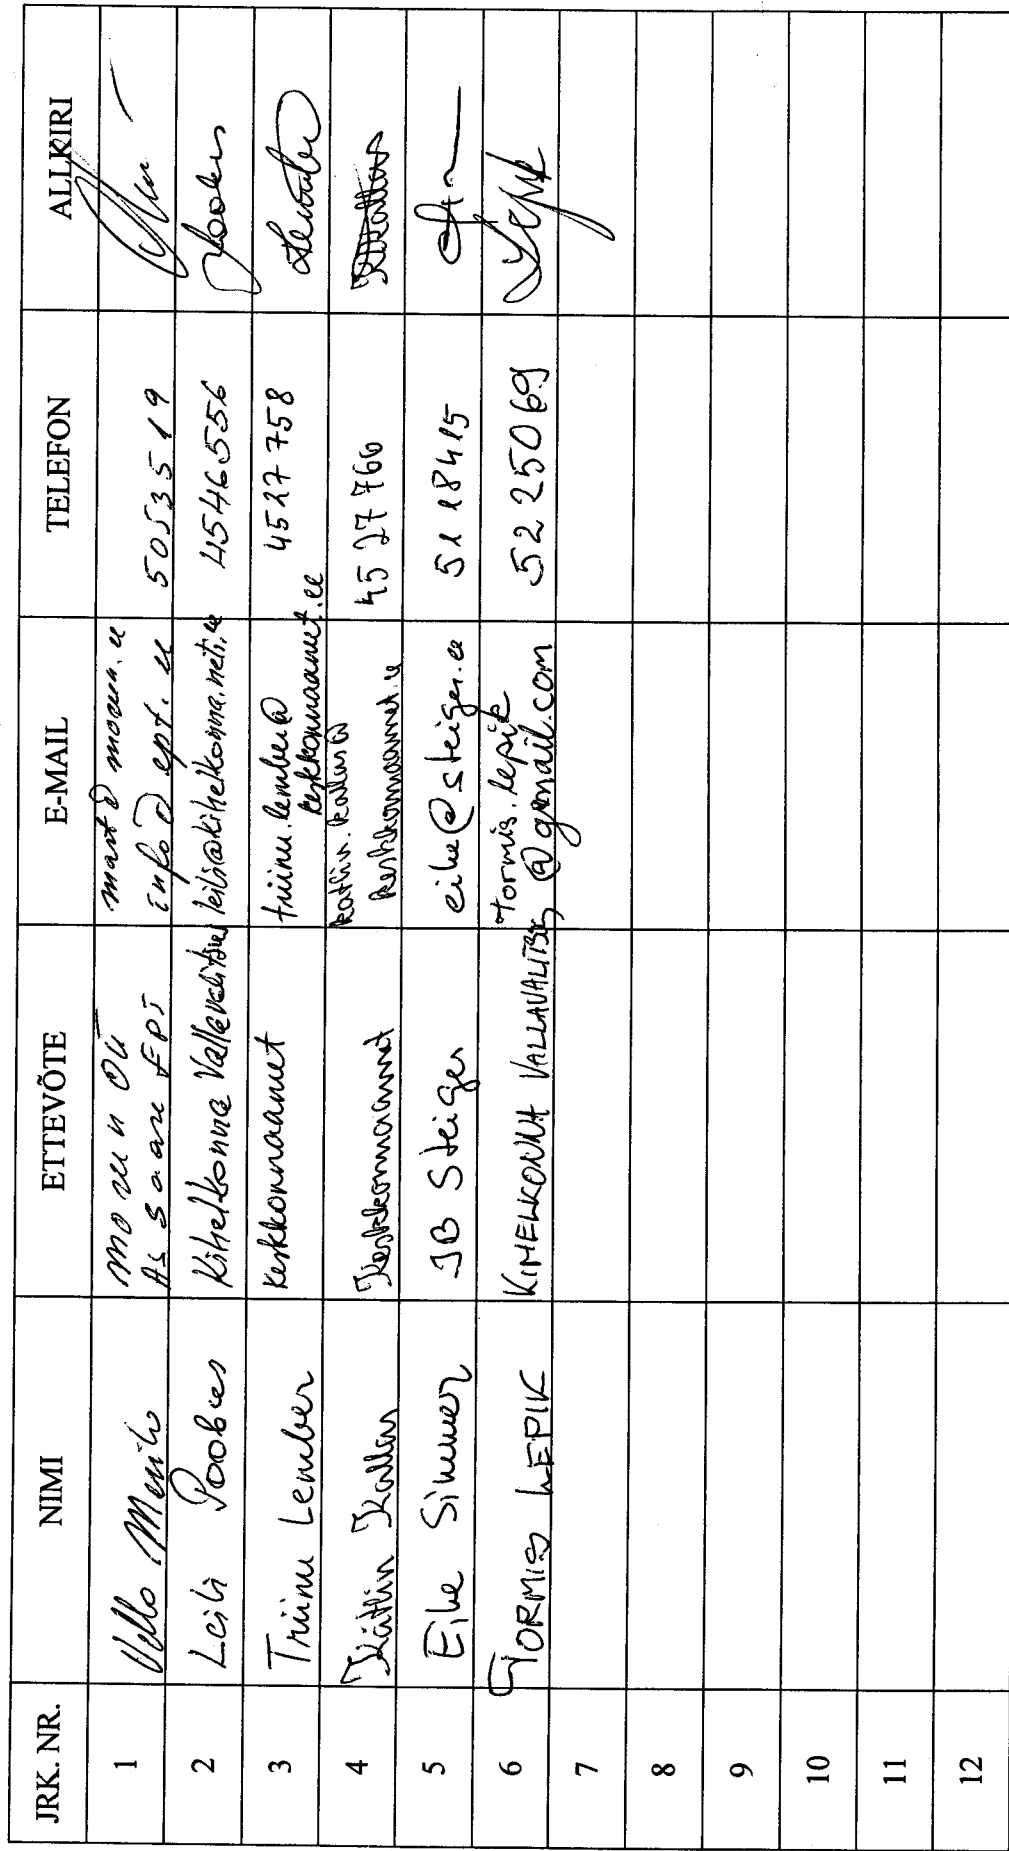 JRK. NR. NIMI ETTEVÕTE E-MAIL TELEFON ALLKIRI
1 Vello Menilo
As Saare EPT info@ept.ee 5053519
2 Leili Poobus Kihelkonna Vallavalitsus leili@kihelkonna.neti.ee 4546556
3 Triinu Lember Keskkonnaamet triinu.lember@
keskkonnaamet.ee 4527758
4 Kätlin Kallas Keskkonnaamet katlin.kallas@
keskkonnaamet.ee 45 27 760
5 Eike Simmer IB Steiger eike@steiger.ee 51 18415
6 TORMIS LEPIK KIHELKONNA VALLAVALITSUS tormis.lepik
@gmail.com 52 25069
7
8
9
10
11
12